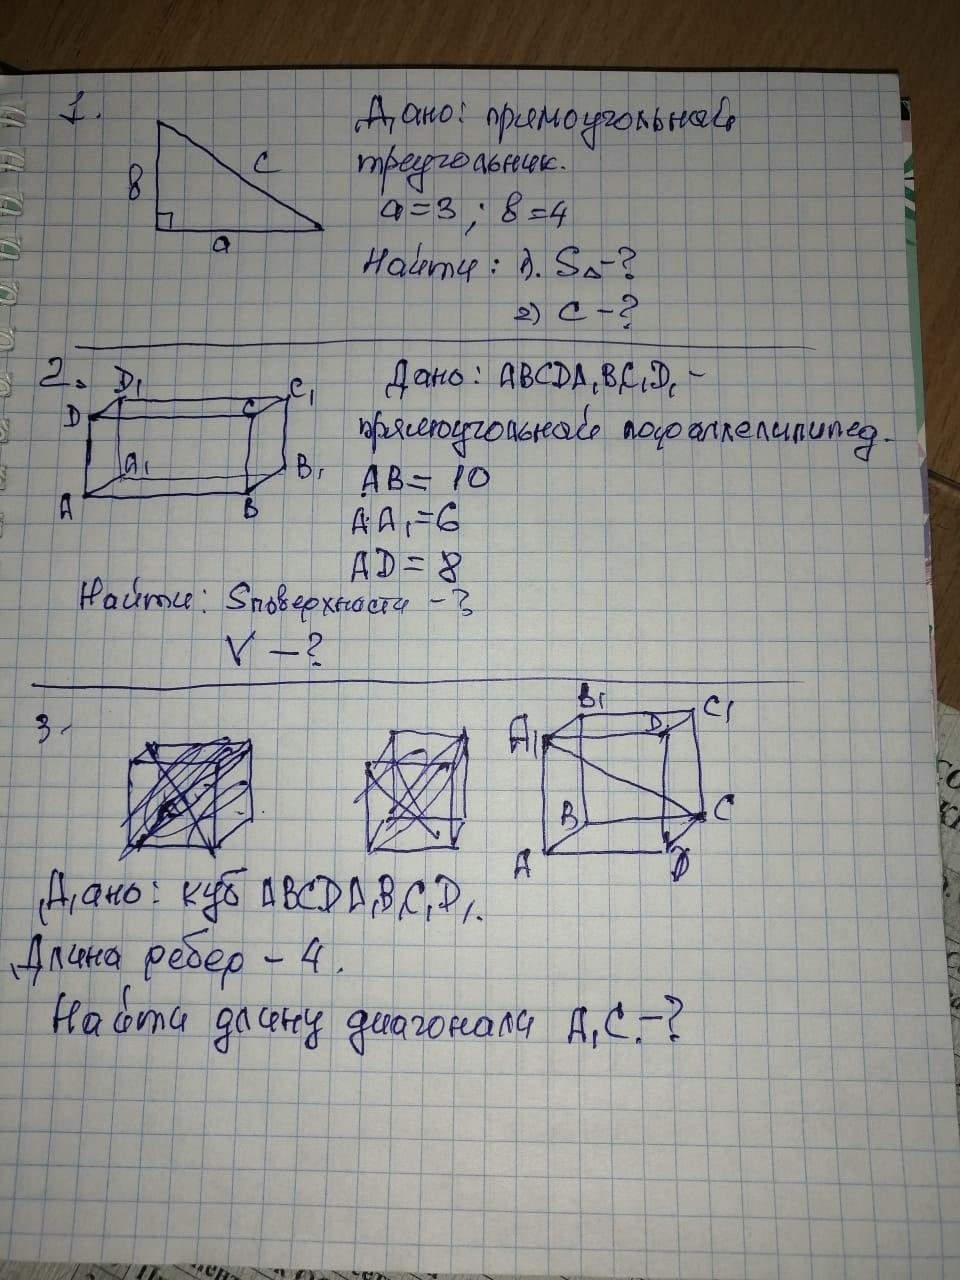 1.
Дано: прямоугольный
треугольник.
в
с
а=3 ; в=4
а
Найти: 1). S△-?
2) с -?
2.
D₁
C₁
D
C
A₁
B₁
A
B
Дано: ABCDA₁B₁C₁D₁ -
прямоугольный параллелипипед.
AB= 10
AA₁=6
AD= 8
Найти: Sповерхности -?
V -?
3.
B₁
C₁
A₁
D₁
B
C
A
D
Дано: куб ABCDA₁B₁C₁D₁.
Длина ребер - 4.
Найти длину диагонали A₁C.-?